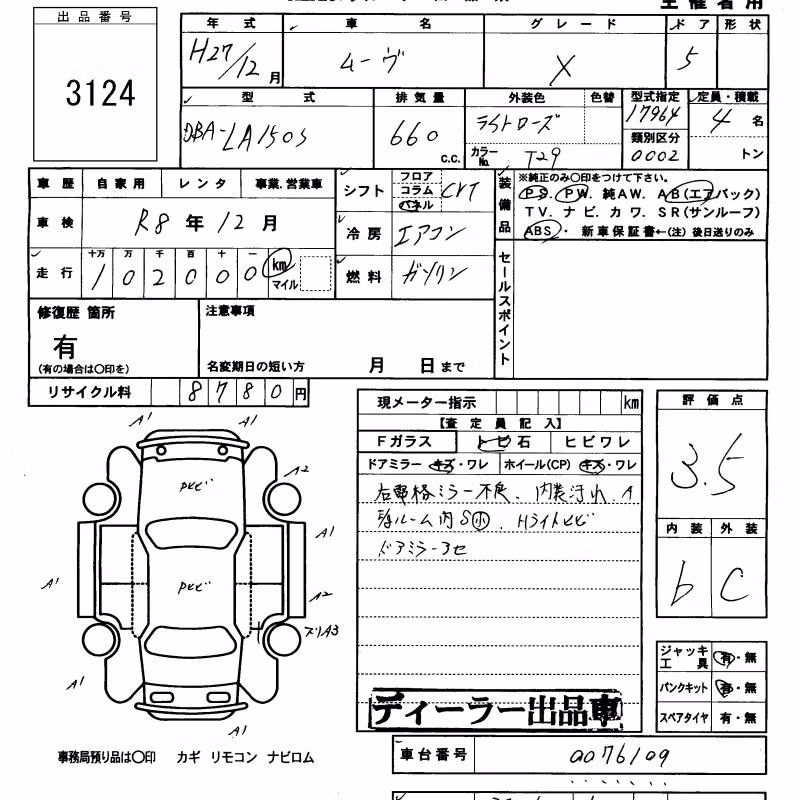 出品番号
3124
年式 車名 グレード ドア 形状
H27/12月 ムーヴ X 5
型式 排気量 外装色 色替 型式指定 定員・積載
DBA-LA150S 660 C.C. ライトローズ 17964 4名
カラーNo. T29 類別区分 0002 トン
車歴 自家用 レンタ 事業.営業車
車検 R8年12月
走行 十万 万 千 百 十 一
102000 km マイル
シフト フロア コラム パネル CVT
冷房 エアコン
燃料 ガソリン
装備品
※純正のみ〇印をつけて下さい。
PS. PW. 純AW. AB(エアバック)
TV. ナビ. カワ. SR(サンルーフ)
ABS・ 新車保証書←(注)後日送りのみ
セールスポイント
修復歴 箇所
有
(有の場合は〇印を)
注意事項
名変期日の短い方 月 日まで
リサイクル料 8780円
現メーター指示 km
【査定員記入】
Fガラス トビ石 ヒビワレ
ドアミラー キズ・ワレ ホイール(CP) キズ・ワレ
ミラー不良、内装汚れ
ルーム内S小 Hライトヒビ
ドアミラーアセ
ディーラー出品車
評価点
3.5
内装 外装
b C
ジャッキ工具 有・無
パンクキット 有・無
スペアタイヤ 有・無
A1 A1
A2
A1
A1 A2
A3
A1
A1
事務局預り品は〇印 カギ リモコン ナビロム
車台番号 0076109